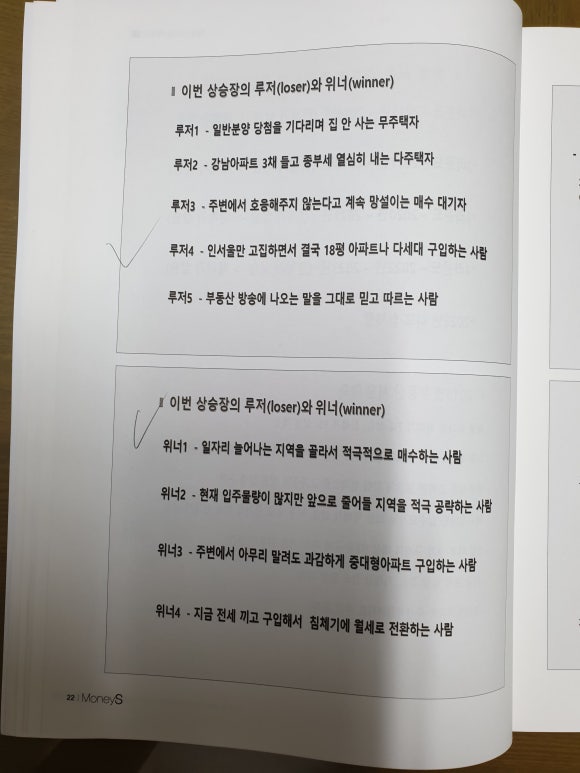 이번 상승장의 루저(loser)와 위너(winner)
루저1 - 일반분양 당첨을 기다리며 집 안 사는 무주택자
루저2 - 강남아파트 3채 들고 종부세 열심히 내는 다주택자
루저3 - 주변에서 호응해주지 않는다고 계속 망설이는 매수 대기자
루저4 - 인서울만 고집하면서 결국 18평 아파트나 다세대 구입하는 사람
루저5 - 부동산 방송에 나오는 말을 그대로 믿고 따르는 사람
이번 상승장의 루저(loser)와 위너(winner)
위너1 - 일자리 늘어나는 지역을 골라서 적극적으로 매수하는 사람
위너2 - 현재 입주물량이 많지만 앞으로 줄어들 지역을 적극 공략하는 사람
위너3 - 주변에서 아무리 말려도 과감하게 중대형아파트 구입하는 사람
위너4 - 지금 전세 끼고 구입해서 침체기에 월세로 전환하는 사람
22 | MoneyS